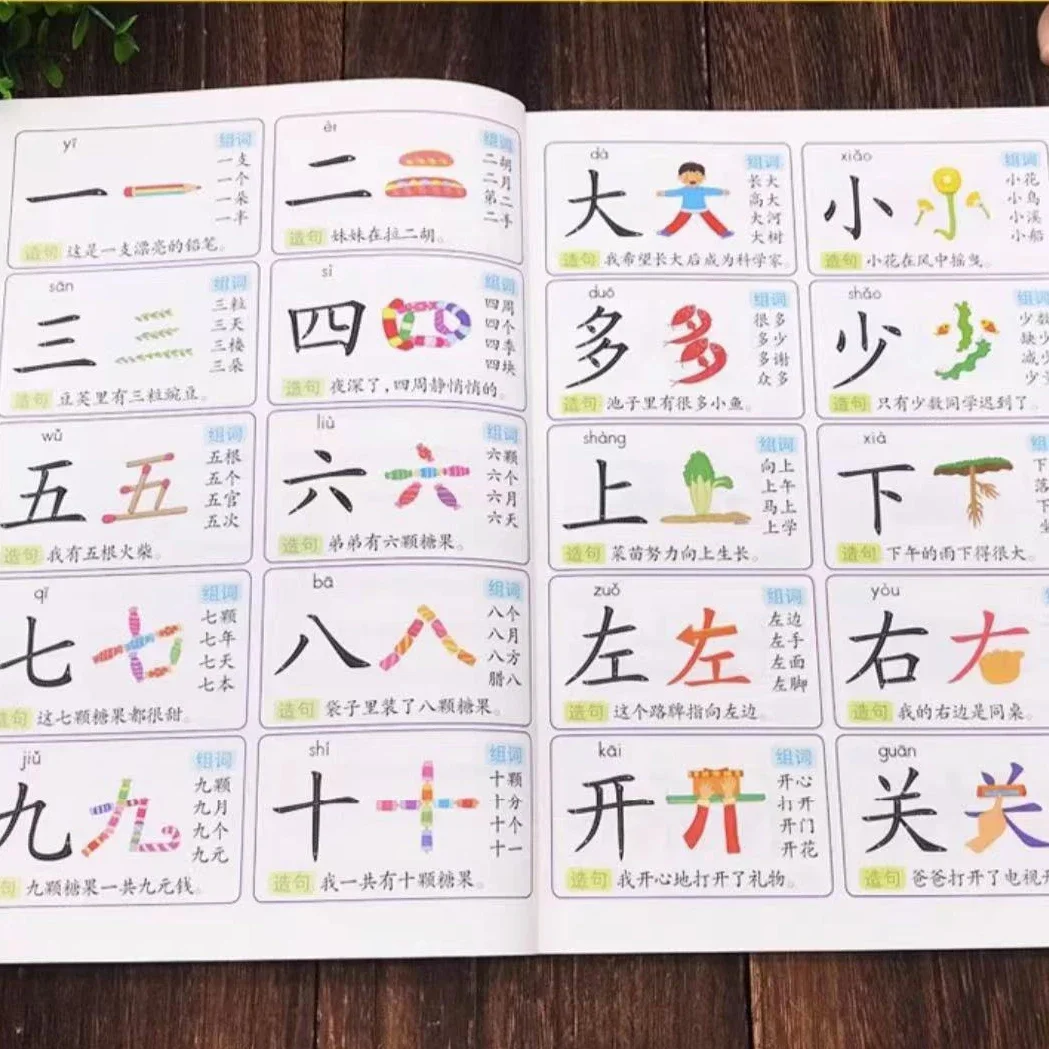 yī
一
组词
一支
一个
一朵
一半
造句 这是一支漂亮的铅笔。
èr
二
组词
二胡
二月
第二
二手
造句 妹妹在拉二胡。
sān
三
组词
三粒
三天
三楼
三朵
造句 豆荚里有三粒豌豆。
sì
四
组词
四周
四个
四季
四块
造句 夜深了，四周静悄悄的。
wǔ
五
组词
五根
五个
五官
五次
造句 我有五根火柴。
liù
六
组词
六颗
六个
六月
六天
造句 弟弟有六颗糖果。
qī
七
组词
七颗
七年
七天
七本
造句 这七颗糖果都很甜。
bā
八
组词
八个
八月
八方
腊八
造句 袋子里装了八颗糖果。
jiǔ
九
组词
九颗
九月
九个
九元
句 九颗糖果一共九元钱。
shí
十
组词
十颗
十分
十个
十一
造句 我一共有十颗糖果。
dà
大
组词
长大
高大
大河
大树
造句 我希望长大后成为科学家。
xiǎo
小
组词
小花
小鸟
小溪
小船
造句 小花在风中摇曳。
duō
多
组词
很多
多少
多谢
众多
造句 池子里有很多小鱼。
shǎo
少
组词
少数
缺少
减少
少
造句 只有少数同学迟到了。
shàng
上
组词
向上
上午
马上
上学
造句 菜苗努力向上生长。
xià
下
组
下
落
下
造句 下午的雨下得很大。
zuǒ
左
组词
左边
左手
左面
左脚
造句 这个路牌指向左边。
yòu
右
造句 我的右边是同桌。
kāi
开
组词
开心
打开
开门
开花
造句 我开心地打开了礼物。
guān
关
造句 爸爸打开了电视开